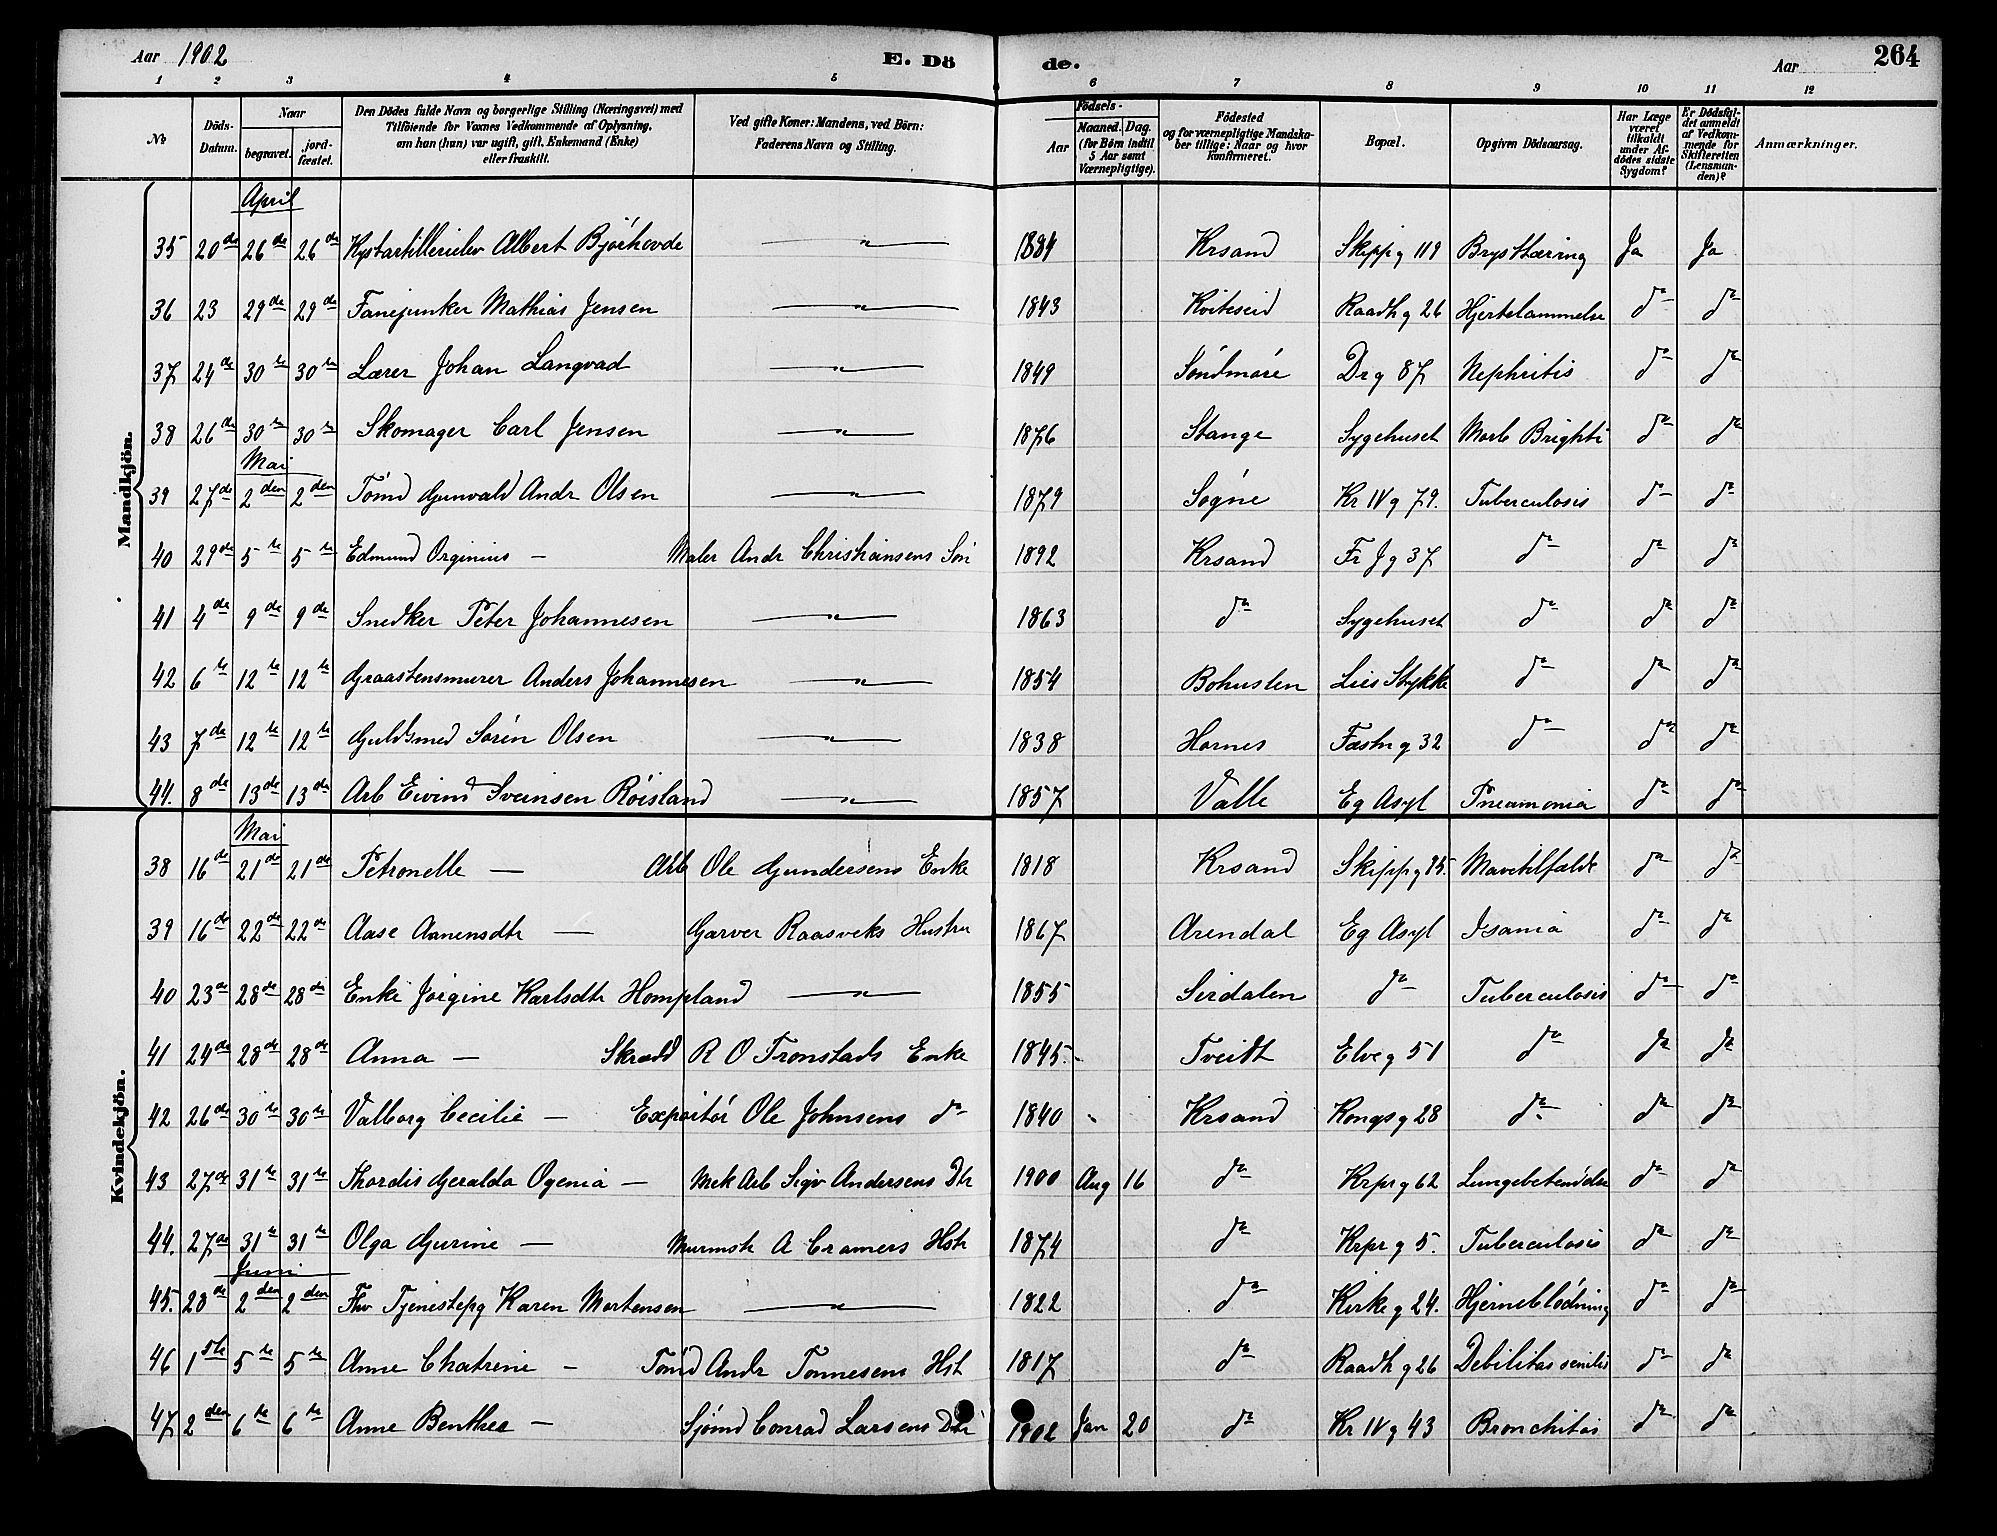 Aar 1902 E. Dö de. Aar 264
1 2 3 4 5 6 7 8 9 10 11 12
№ Döds-Datum. Naar begravet. jordfæstet. Den Dödes fulde Navn og borgerlige Stilling (Næringsvei) med Tilföiende for Voxnes Vedkommende af Oplysning, om han (hun) var ugift, gift, Enkemand (Enke) eller fraskilt. Ved gifte Koner: Mandens, ved Börn: Faderens Navn og Stilling. Födsels- Aar Maaned. Dag. (for Börn indtil 5 Aar samt Værnepligtige). Födested og for værnepligtige Mandskaber tillige: Naar og hvor konfirmeret. Bopæl. Opgiven Dödsaarsag. Har Læge været tilkaldt under Afdödes sidste Sygdom? Er Dödsfaldet anmeldt af Vedkommende for Skifteretten (Lensmanden)? Anmærkninger.
Mandkjön.
April
35 20de 26de 26de Kystartillerielev Albert Bjórhovde —"— 1884 Krsand Skippg 119 Brysttæring Ja Ja
36 23 29de 29de Fanejunker Mathias Jensen —"— 1843 Kviteseid Raadhg 26 Hjertelammelse do do
37 24de 30te 30te Lærer Johan Langvad —"— 1849 Söndmöre Drg 87 Nephritis do do
38 26de 30te 30te Skomager Carl Jensen —"— 1876 Stange Sygehuset Morb Brighti do do
Mai
39 27de 2den 2den Tömd Gunvald Andr Olsen —"— 1879 Sögne Kr IV g 79. Tuberculosis do do
40 29de 5te 5te Edmund Orginius — Maler Andr Christiansens Sön 1892 Krsand Fr J g 37 do do do
41 4de 9de 9de Snedker Peter Johannesen —"— 1863 do Sygehuset do do do
42 6te 12te 12te Graastensmurer Anders Johannesen —"— 1854 Bohuslen Lies Stykke do do do
43 7de 12te 12te Guldsmed Sören Olsen —"— 1838 Hornes Fæstn g 32 do do do
44. 8de 13de 13de Arb Eivind Sveinsen Röisland —"— 1857 Valle Eg Asyl Pneamonia do do
Kvindekjön.
Mai
38 16de 21de 21de Petronelle — Arb Ole Gundersens Enke 1818 Krsand Skippg 85. Mavetilfælde do do
39 16de 22de 22de Aase Aanensdtr — Garver Raasveks Hustru 1867 Arendal Eg Asyl Isania do do
40 23de 28de 28de Enke Jörgine Karlsdtr Hompland —"— 1855 Sirdalen do Tuberculosis do do
41 24de 28de 28de Anna — Skrædd R O Tronstads Enke 1845. Tveidt Elveg 51 do do do
42 26de 30te 30te Valborg Cecilie — Expeditör Ole Johnsens do 1840 Krsand Kongsg 28 do do do
43 27de 31te 31te Thordis Geralda Ogenia — Mek Arb Sigv Andersens Dtr 1900 Aug 16 do Krprg 62 Lungebetendelse do do
44. 27de 31te 31te Olga Gurine — Murmstr A Cramers Hstr 1874 do Krprg 5. Tuberculosis do do
Juni
45. 28de 2den 2den Fhv Tjenestepg Karen Mortensen —"— 1822 do Kirkeg 24. Hjerneblödning do do
46 1ste 5te 5te Anne Chatrine — Tömd Andr Tönnesens Hstr 1817 do Raadhg 26 Debilitas senilis do do
47 2den 6te 6te Anne Benthea — Sjömd Conrad Larsens Dtr 1902 Jan 20 do Kr IV g 43 Bronchitis do do